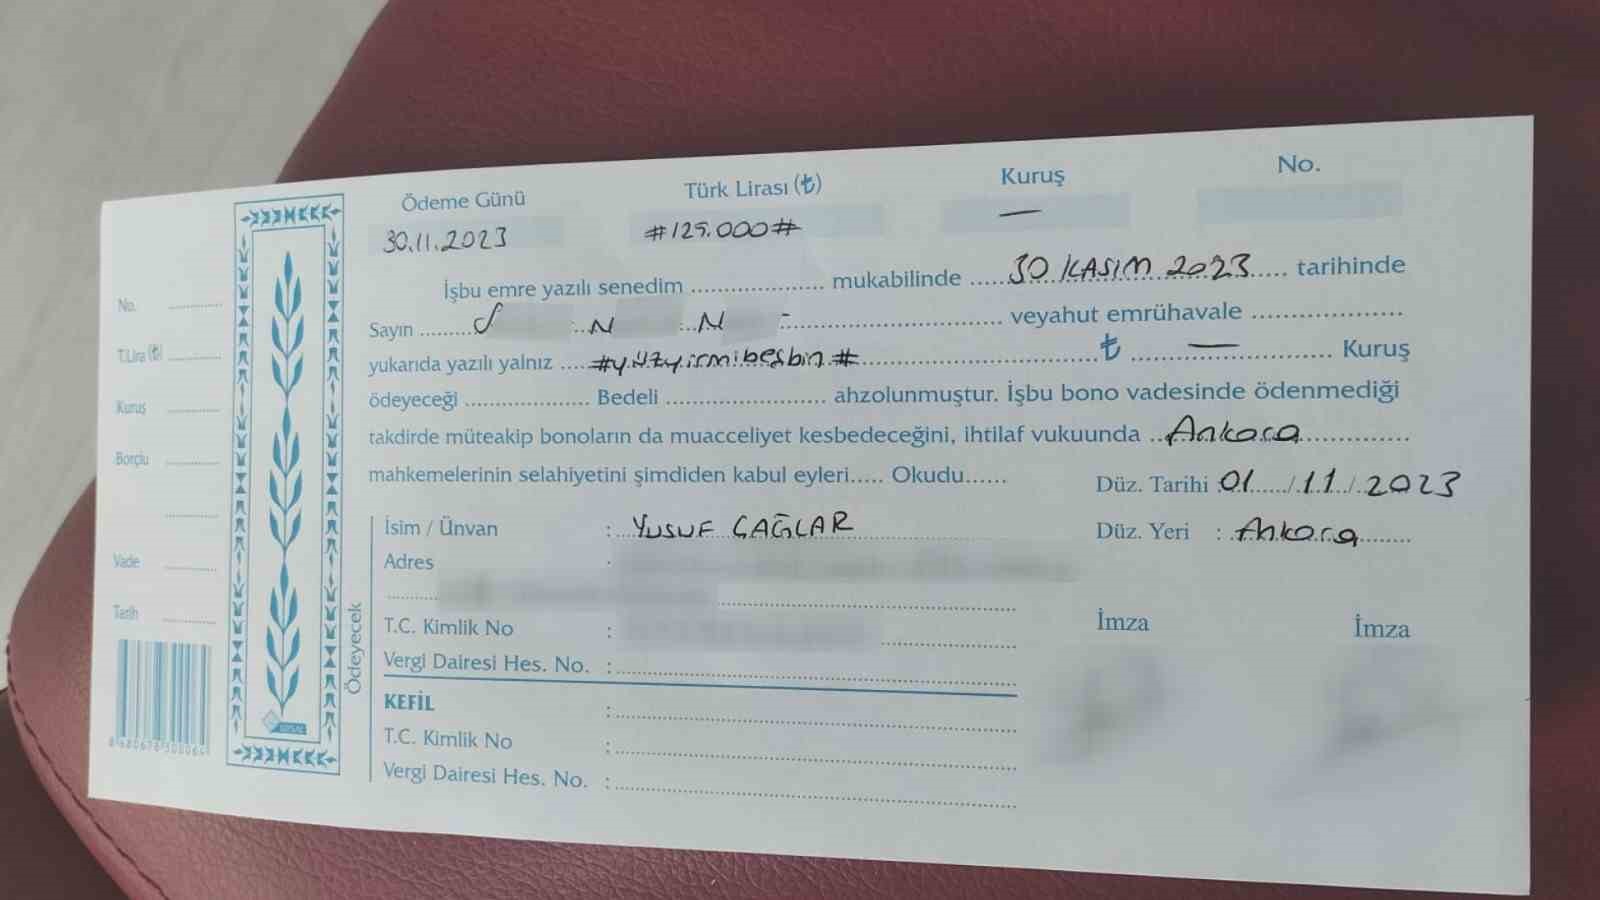 Ödeme Günü Türk Lirası (₺) Kuruş No.
30.11.2023 #125.000# —
İşbu emre yazılı senedim .................... mukabilinde ...... 30 KASIM 2023 ..... tarihinde
Sayın ........ S N N ........ veyahut emrühavale ....................
yukarıda yazılı yalnız .... #yüzyirmibeşbin# .................... ₺ ...... — ............ Kuruş
ödeyeceği .................. Bedeli ...................... ahzolunmuştur. İşbu bono vadesinde ödenmediği
takdirde müteakip bonoların da muacceliyet kesbedeceğini, ihtilaf vukuunda .. Ankara ..............
mahkemelerinin selahiyetini şimdiden kabul eyleri..... Okudu......
Düz. Tarihi : 01 / 11 / 2023
Düz. Yeri : Ankara
Ödeyecek
İsim / Ünvan : YUSUF ÇAĞLAR
Adres :
T.C. Kimlik No :
Vergi Dairesi Hes. No. :
KEFİL :
T.C. Kimlik No :
Vergi Dairesi Hes. No. :
İmza İmza
No. ..........
T.Lira (₺) ..........
Kuruş ..........
Borçlu ..........
Vade ..........
Tarih ..........